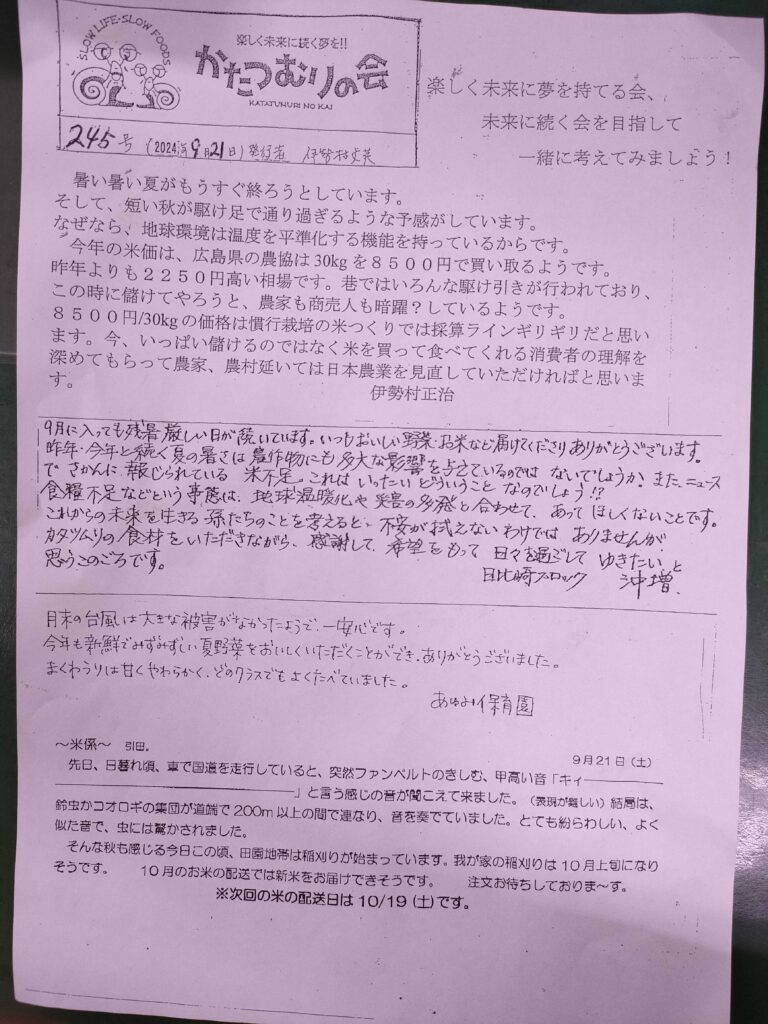 SLOW LIFE・SLOW FOODS
楽しく未来に続く夢を!!
かたつむりの会
KATATUMURI NO KAI
245号 (2024年9月21日) 発行者 伊勢村
楽しく未来に夢を持てる会、
未来に続く会を目指して
一緒に考えてみましょう!
暑い暑い夏がもうすぐ終ろうとしています。
そして、短い秋が駆け足で通り過ぎるような予感がしています。
なぜなら、地球環境は温度を平準化する機能を持っているからです。
今年の米価は、広島県の農協は30kgを8500円で買い取るようです。
昨年よりも2250円高い相場です。巷ではいろんな駆け引きが行われており、
この時に儲けてやろうと、農家も商売人も暗躍?しているようです。
8500円/30kgの価格は慣行栽培の米つくりでは採算ラインギリギリだと思い
ます。今、いっぱい儲けるのではなく米を買って食べてくれる消費者の理解を
深めてもらって農家、農村延いては日本農業を見直していただければと思いま
す。 伊勢村正治
9月に入っても残暑厳しい日が続いています。いつもおいしい野菜・お米など届けてくださりありがとうございます。
昨年・今年と続く夏の暑さは農作物にも多大な影響を与えているのではないでしょうか?また、ニュース
でさかんに報じられている米不足。これはいったいどういうことなのでしょう!?
食糧不足などという事態は、地球温暖化や災害の多発と合わせて、あってほしくないことです。
これからの未来を生きる孫たちのことを考えると、不安が拭えないわけではありませんが、
カタツムリの食材をいただきながら、感謝して、希望をもって日々を過ごしてゆきたいと
思うこのごろです。 日比崎ブロック 沖増
月末の台風は大きな被害がなかったようで、一安心です。
今年も新鮮でみずみずしい夏野菜をおいしくいただくことができ、ありがとうございました。
まくわうりは甘くやわらかく、どのクラスでもよくたべていました。
あゆみ保育園
〜米係〜 引田。 9月21日(土)
先日、日暮れ頃、車で国道を走行していると、突然ファンベルトのきしむ、甲高い音「キィ―――――――
――――――――――――――」と言う感じの音が聞こえて来ました。(表現が難しい)結局は、
鈴虫かコオロギの集団が道端で200m以上の間で連なり、音を奏でていました。とても紛らわしい、よく
似た音で、虫には驚かされました。
そんな秋も感じる今日この頃、田園地帯は稲刈りが始まっています。我が家の稲刈りは10月上旬になり
そうです。 10月のお米の配送では新米をお届けできそうです。 注文お待ちしておりま〜す。
※次回の米の配送日は10/19(土)です。